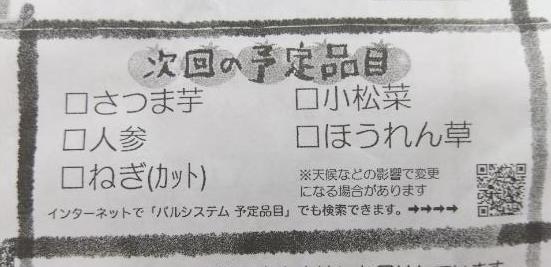 次回の予定品目
□さつま芋
□人参
□ねぎ(カット)
□小松菜
□ほうれん草
※天候などの影響で変更
になる場合があります
インターネットで「パルシステム 予定品目」でも検索できます。→→→→